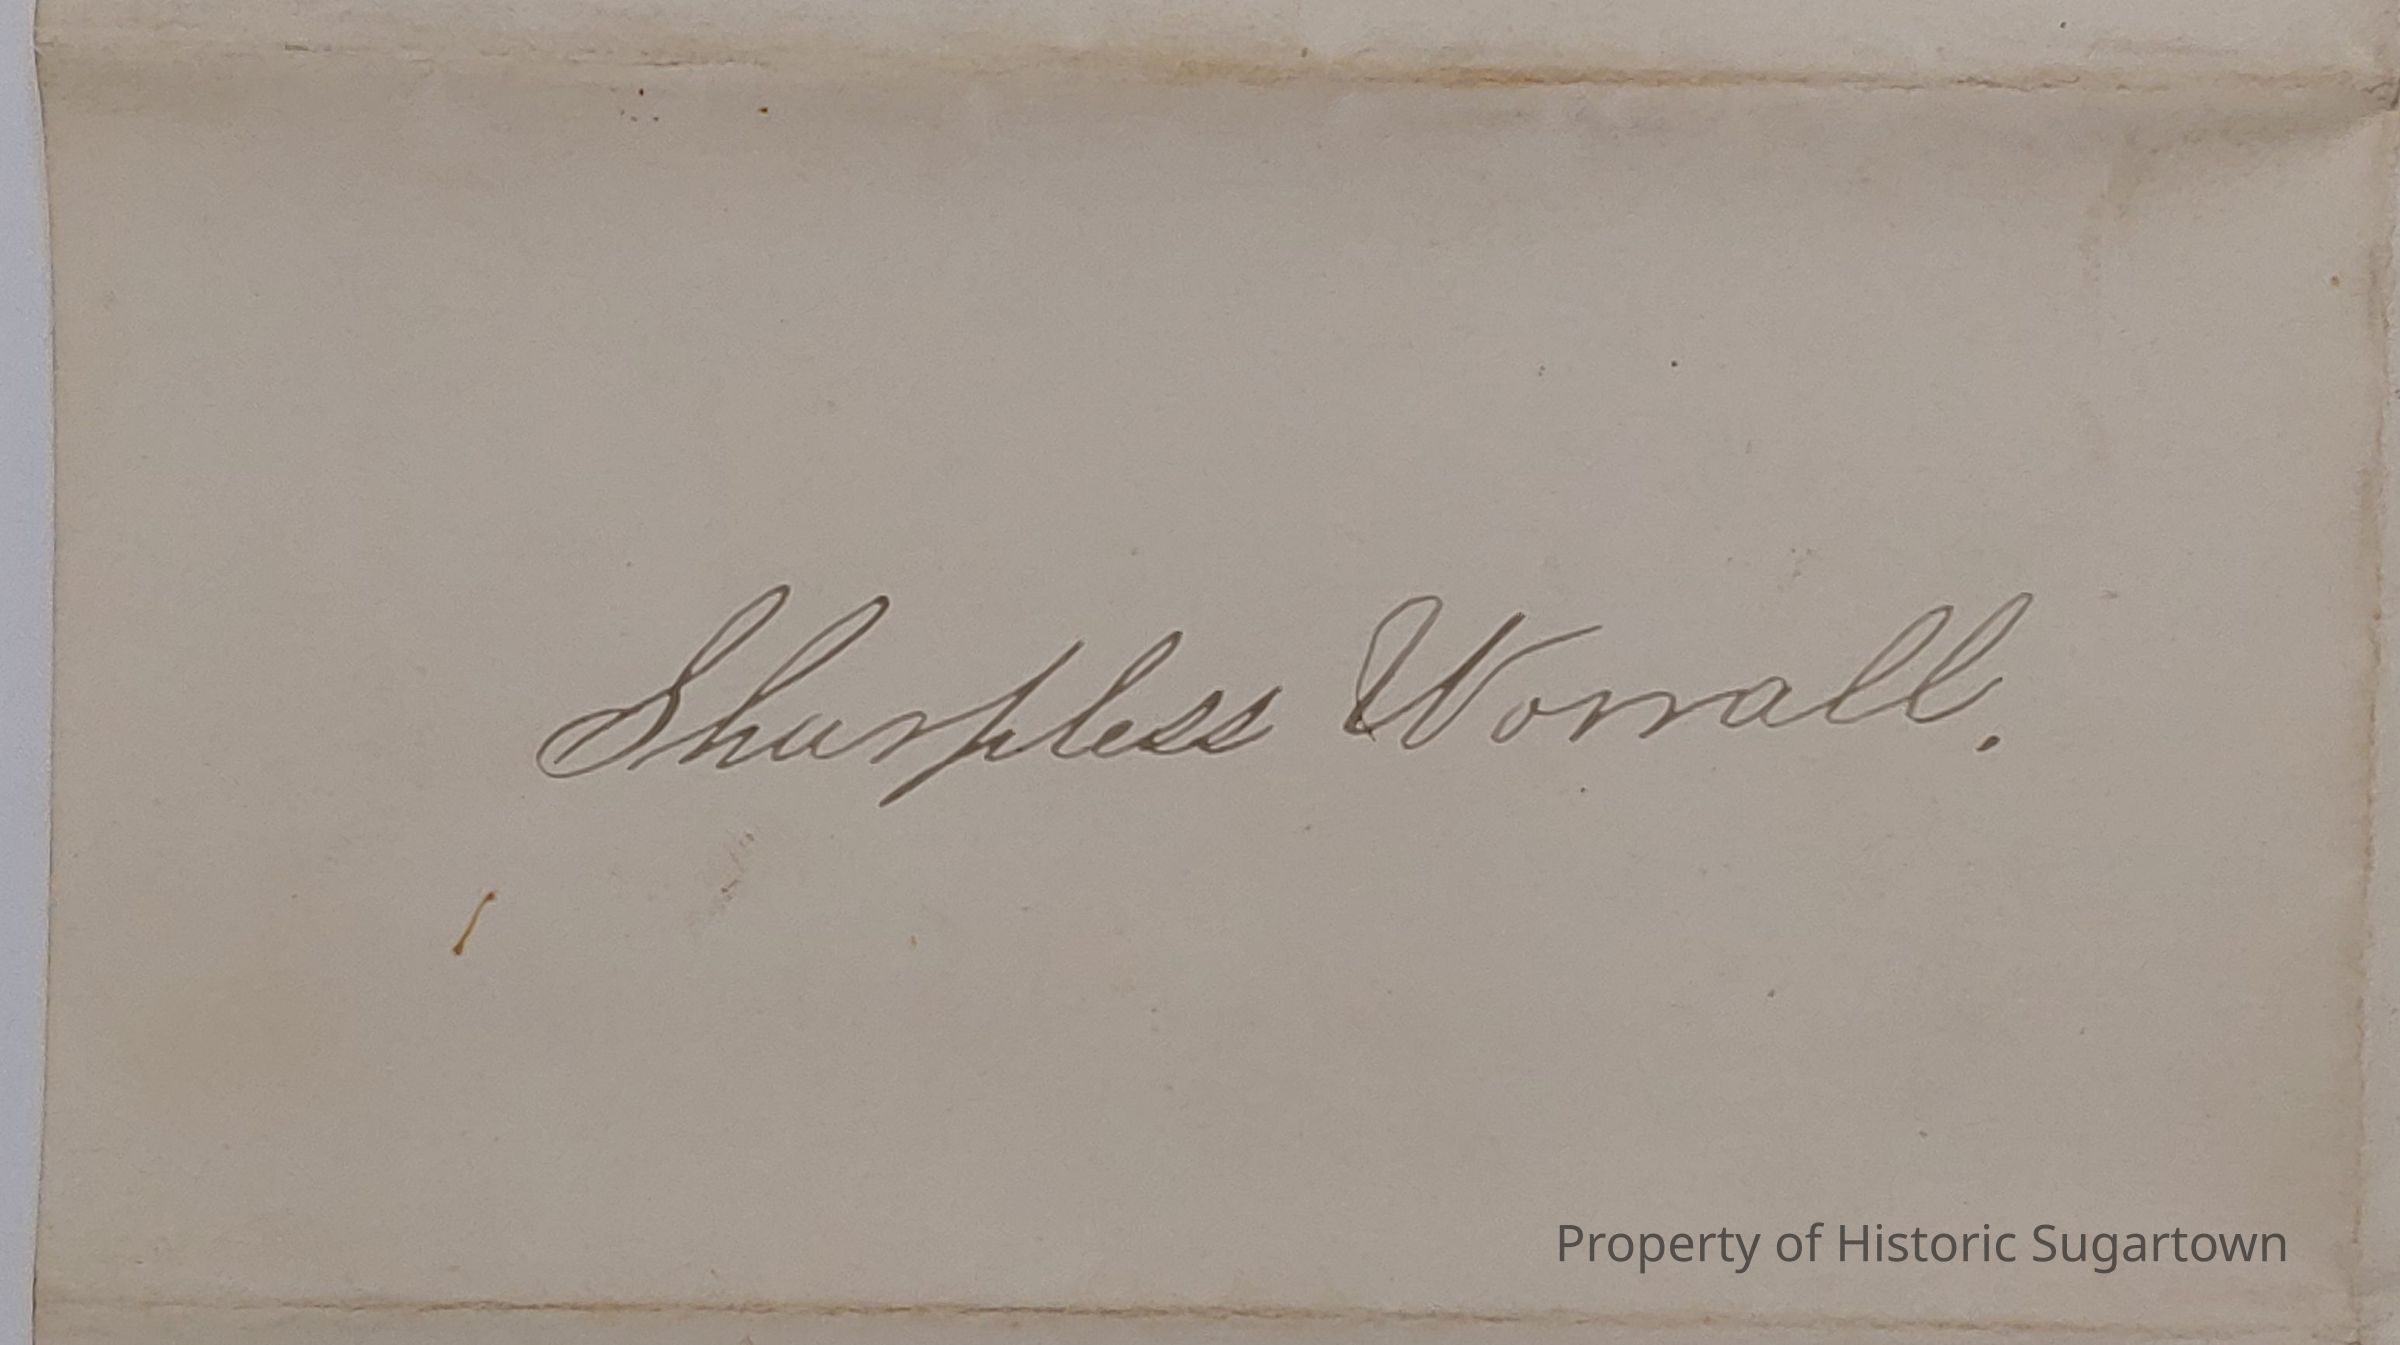 Sharpless Worrall.
Property of Historic Sugartown